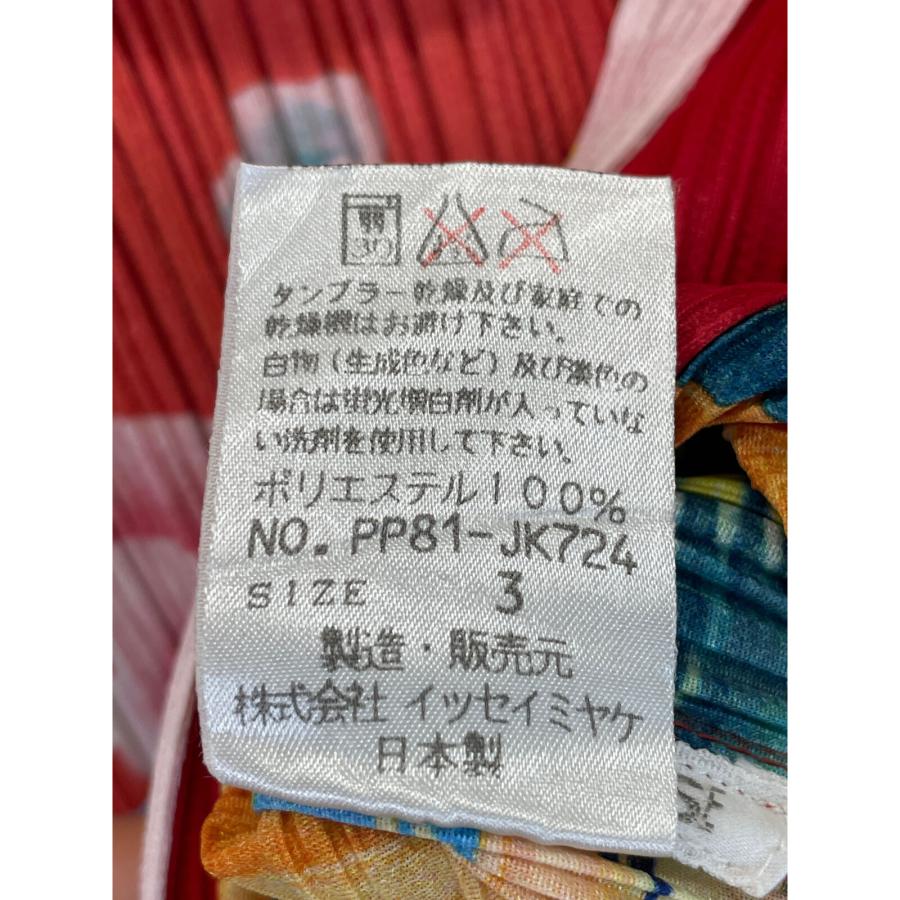 タンブラー乾燥及び家庭での
乾燥機はお避け下さい。
白物(生成色など)及び淡色の
場合は蛍光増白剤が入っていな
い洗剤を使用して下さい。
ポリエステル100%
NO. PP81-JK724
SIZE 3
製造・販売元
株式会社 イッセイミヤケ
日本製